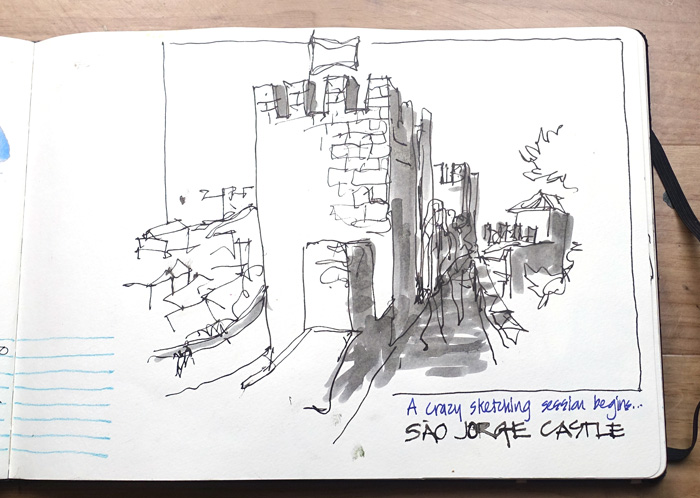 A crazy sketching session begins...
SÃO JORGE CASTLE